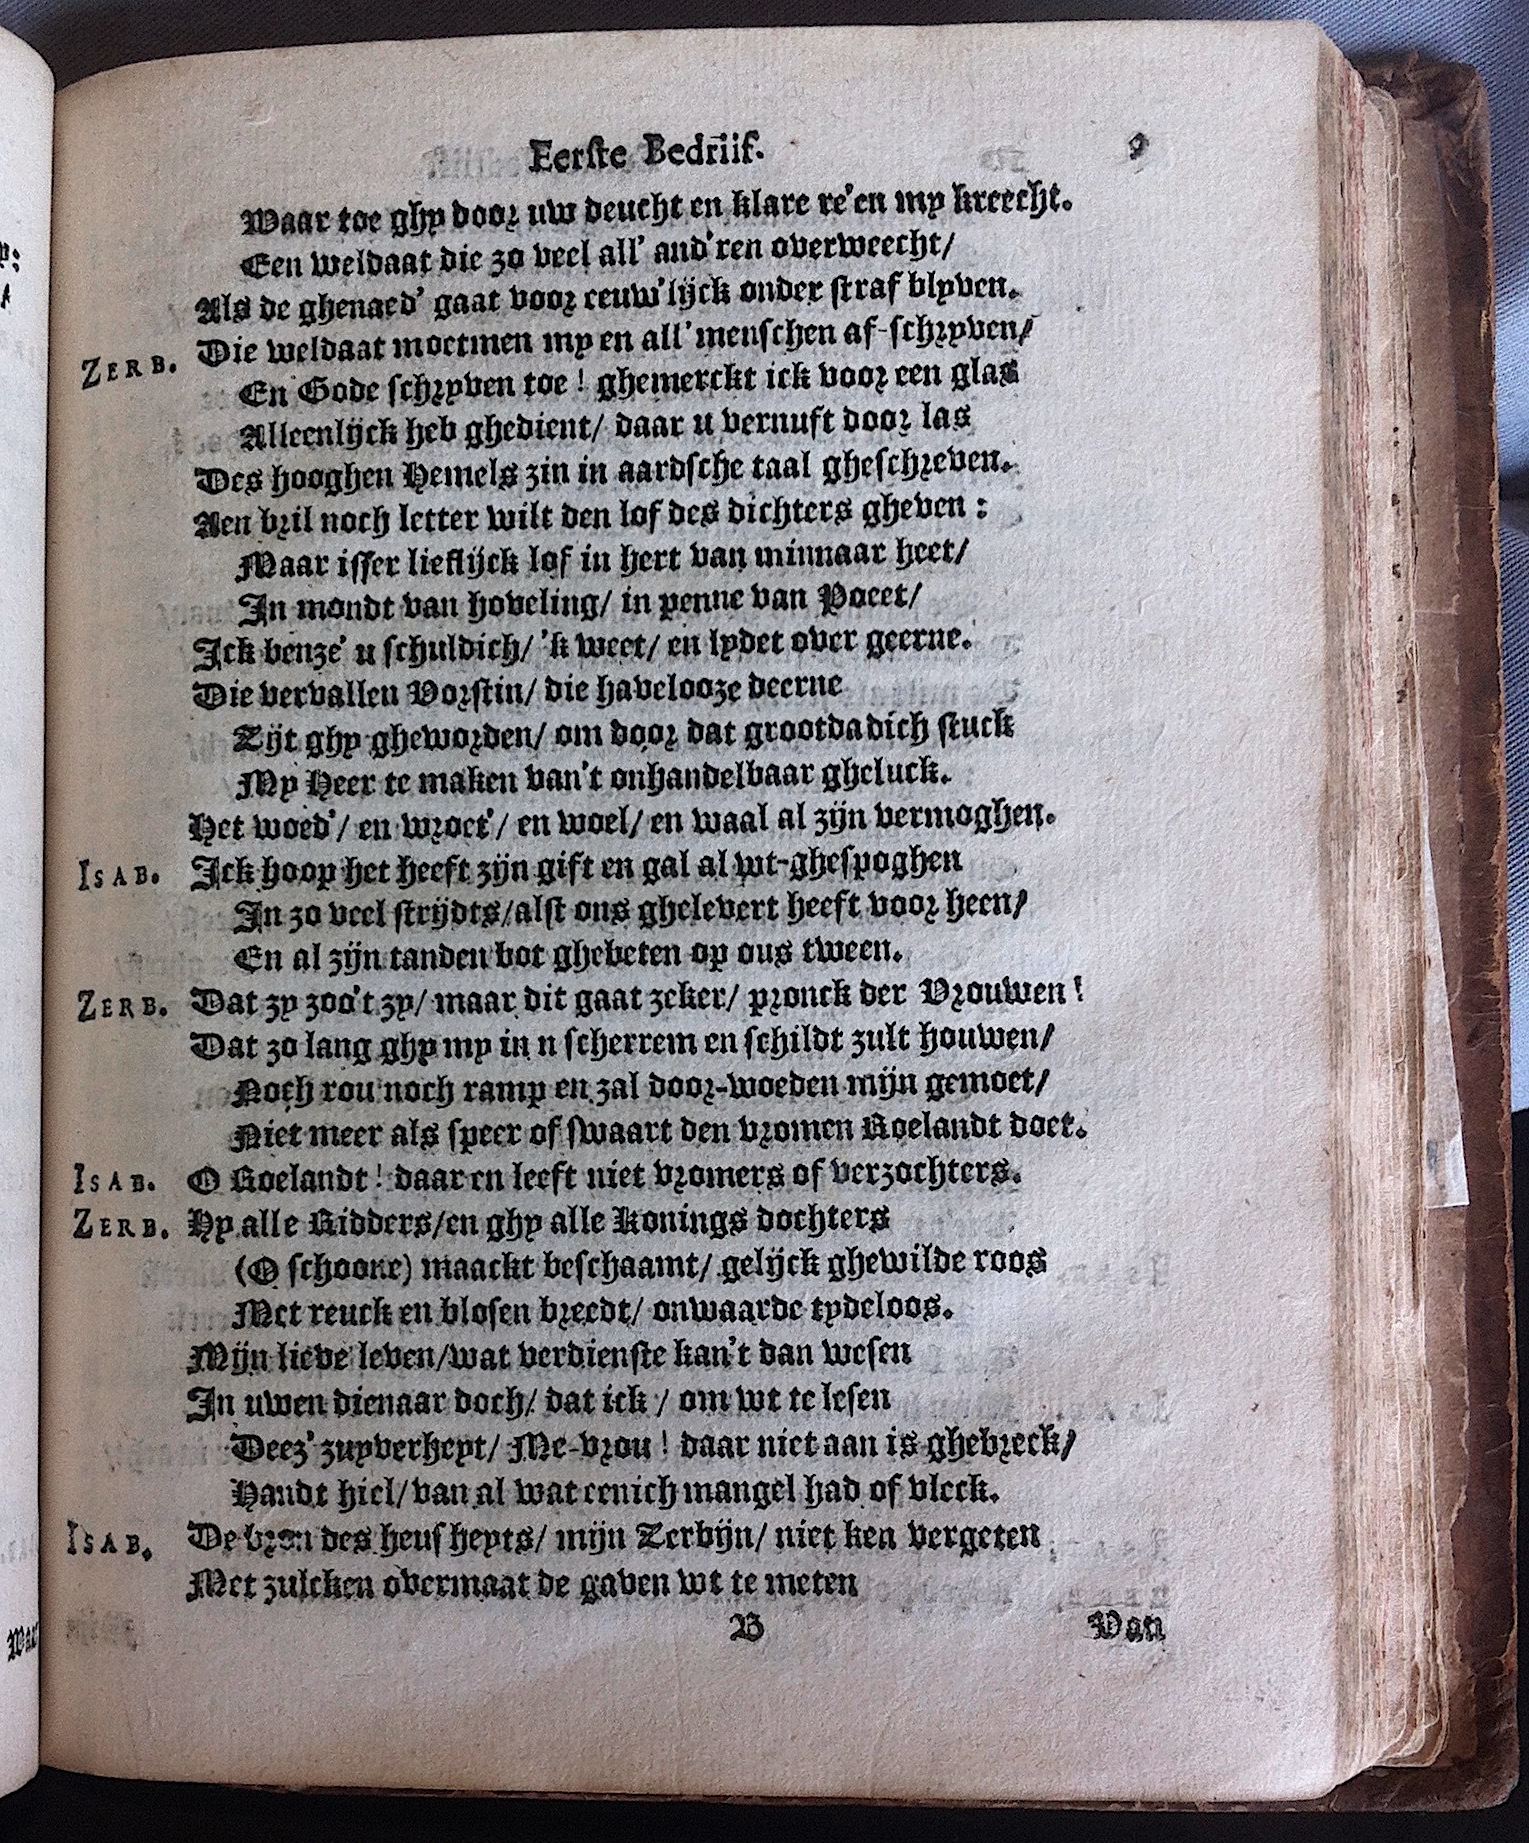 Eerste Bedrijf. 9
Waar toe ghy door uw deucht en klare re'en my kreecht.
Een weldaat die zo veel all' and'ren overweecht/
Als de ghenaed' gaat voor eeuw'lijck onder straf blyven.
ZERB. Die weldaat moetmen my en all' menschen af-schryven/
En Gode schryven toe! ghemerckt ick voor een glas
Alleenlijck heb ghedient/ daar u vernuft door las
Des hooghen Hemels zin in aardsche taal gheschreven.
Aen bril noch letter wilt den lof des dichters gheven:
Maar isser lieflijck lof in hert van minnaar heet/
In mondt van hoveling/ in penne van Poeet/
Ick benze' u schuldich/ 'k weet/ en lydet over geerne.
Die vervallen Vorstin/ die havelooze deerne
Zijt ghy gheworden/ om door dat grootdadich stuck
My Heer te maken van't onhandelbaar gheluck.
Het woed'/ en wroet'/ en woel/ en waal al zijn vermoghen.
ISAB. Ick hoop het heeft zijn gift en gal al wt-ghespoghen
In zo veel strijdts/alst ons ghelevert heeft voor heen/
En al zijn tanden bot ghebeten op ons tween.
ZERB. Dat zy zoo't zy/ maar dit gaat zeker/ pronck der Vrouwen!
Dat zo lang ghy my in n scherrem en schildt zult houwen/
Noch rou noch ramp en zal door-woeden mijn gemoet/
Niet meer als speer of swaart den vromen Roelandt doet.
ISAB. O Roelandt! daar en leeft niet vromers of verzochters.
ZERB. Hy alle Ridders/en ghy alle Konings dochters
(O schoone) maackt beschaamt/ gelijck ghewilde roos
Met reuck en blosen breedt/ onwaarde tydeloos.
Mijn lieve leven/wat verdienste kan't dan wesen
In uwen dienaar doch/ dat ick/ om wt te lesen
Deez' zuyverheyt/ Me-vrou! daar niet aan is ghebreck/
Handt hiel/ van al wat eenich mangel had of vleck.
ISAB. De bron des heusheyts/ mijn Zerbijn/ niet ken vergeten
Met zulcken overmaat de gaven wt te meten
B Van